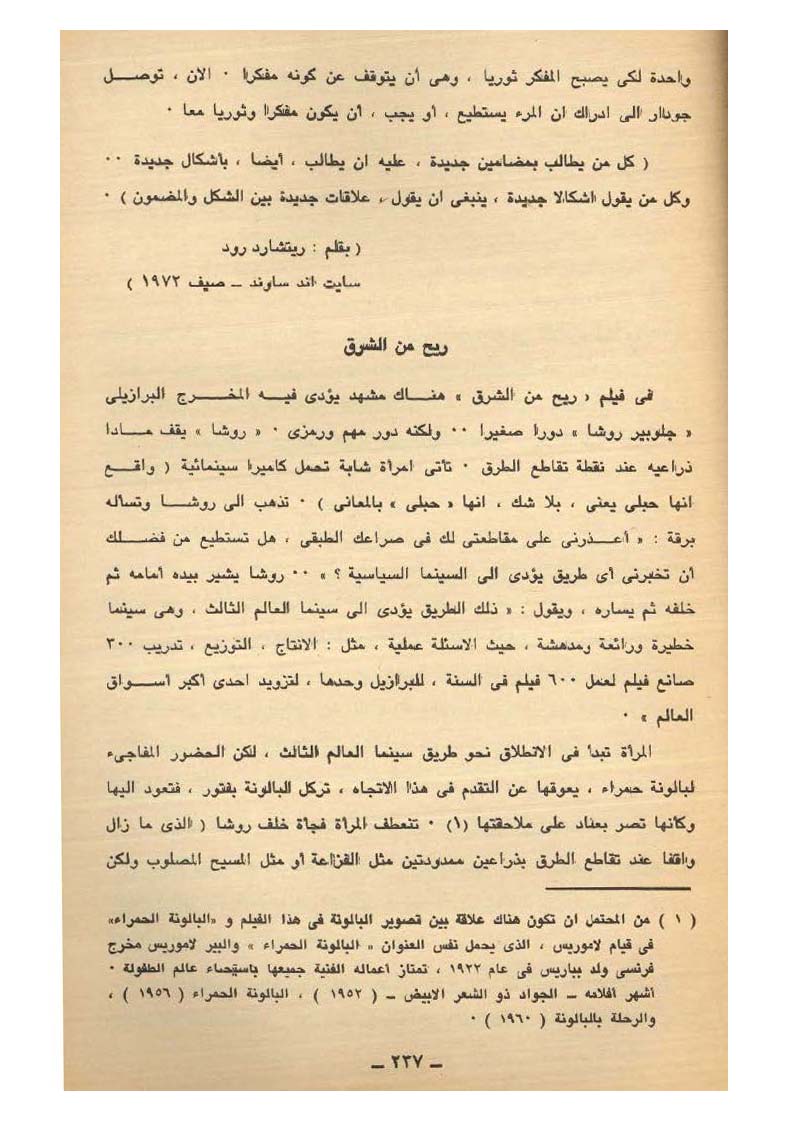 واحدة لكى يصبح المفكر ثوريا ، وهى أن يتوقف عن كونه مفكرا ٠ الآن ، توصــل
جودار الى ادراك ان المرء يستطيع ، أو يجب ، أن يكون مفكرا وثوريا معا ٠
( كل من يطالب بمضامين جديدة ، عليه ان يطالب ، أيضا ، بأشكال جديدة ٠٠
وكل من يقول اشكالا جديدة ، ينبغى ان يقول ، علاقات جديدة بين الشكل والمضمون ) ٠
( بقلم : ريتشارد رود
سايت اند ساوند ــ صيف ١٩٧٢ )
ريح من الشرق
فى فيلم « ريح من الشرق » هنــاك مشهد يؤدى فيــه المخــرج البرازيلى
« جلوبير روشا » دورا صغيرا ٠٠ ولكنه دور مهم ورمزى ٠ « روشا » يقف مــادا
ذراعيه عند نقطة تقاطع الطرق ٠ تأتى امرأة شابة تحمل كاميرا سينمائية ( واقــع
انها حبلى يعنى ، بلا شك ، انها « حبلى » بالمعانى ) ٠ تذهب الى روشــا وتسأله
برقة : « أعــذرنى على مقاطعتى لك فى صراعك الطبقى ، هل تستطيع من فضــلك
أن تخبرنى أى طريق يؤدى الى السينما السياسية ؟ » ٠٠ روشا يشير بيده أمامه ثم
خلفه ثم يساره ، ويقول : « ذلك الطريق يؤدى الى سينما العالم الثالث ، وهى سينما
خطيرة ورائعة ومدهشة ، حيث الاسئلة عملية ، مثل : الانتاج ، التوزيع ، تدريب ٣٠٠
صانع فيلم لعمل ٦٠٠ فيلم فى السنة ، للبرازيل وحدها ، لتزويد احدى أكبر أســواق
العالم » ٠
المرأة تبدأ فى الانطلاق نحو طريق سينما العالم الثالث ، لكن الحضور المفاجىء
لبالونة حمراء ، يعوقها عن التقدم فى هذا الاتجاه ، تركل البالونة بفتور ، فتعود اليها
وكأنها تصر بعناد على ملاحقتها (١) ٠ تنعطف المرأة فجأة خلف روشا ( الذى ما زال
واقفا عند تقاطع الطرق بذراعين ممدودتين مثل الفزاعة أو مثل المسيح المصلوب ولكن
( ١ ) من المحتمل ان تكون هناك علاقة بين تصوير البالونة فى هذا الفيلم و «البالونة الحمراء»
فى قيام لاموريس ، الذى يحمل نفس العنوان « البالونة الحمراء » والبير لاموريس مخرج
فرنسى ولد بباريس فى عام ١٩٢٢ ، تمتاز أعماله الفنية جميعها باستيحاء عالم الطفولة ٠
أشهر أفلامه ــ الجواد ذو الشعر الابيض ــ ( ١٩٥٢ ) ، البالونة الحمراء ( ١٩٥٦ ) ،
والرحلة بالبالونة ( ١٩٦٠ ) ٠
ــ ٢٣٧ ــ